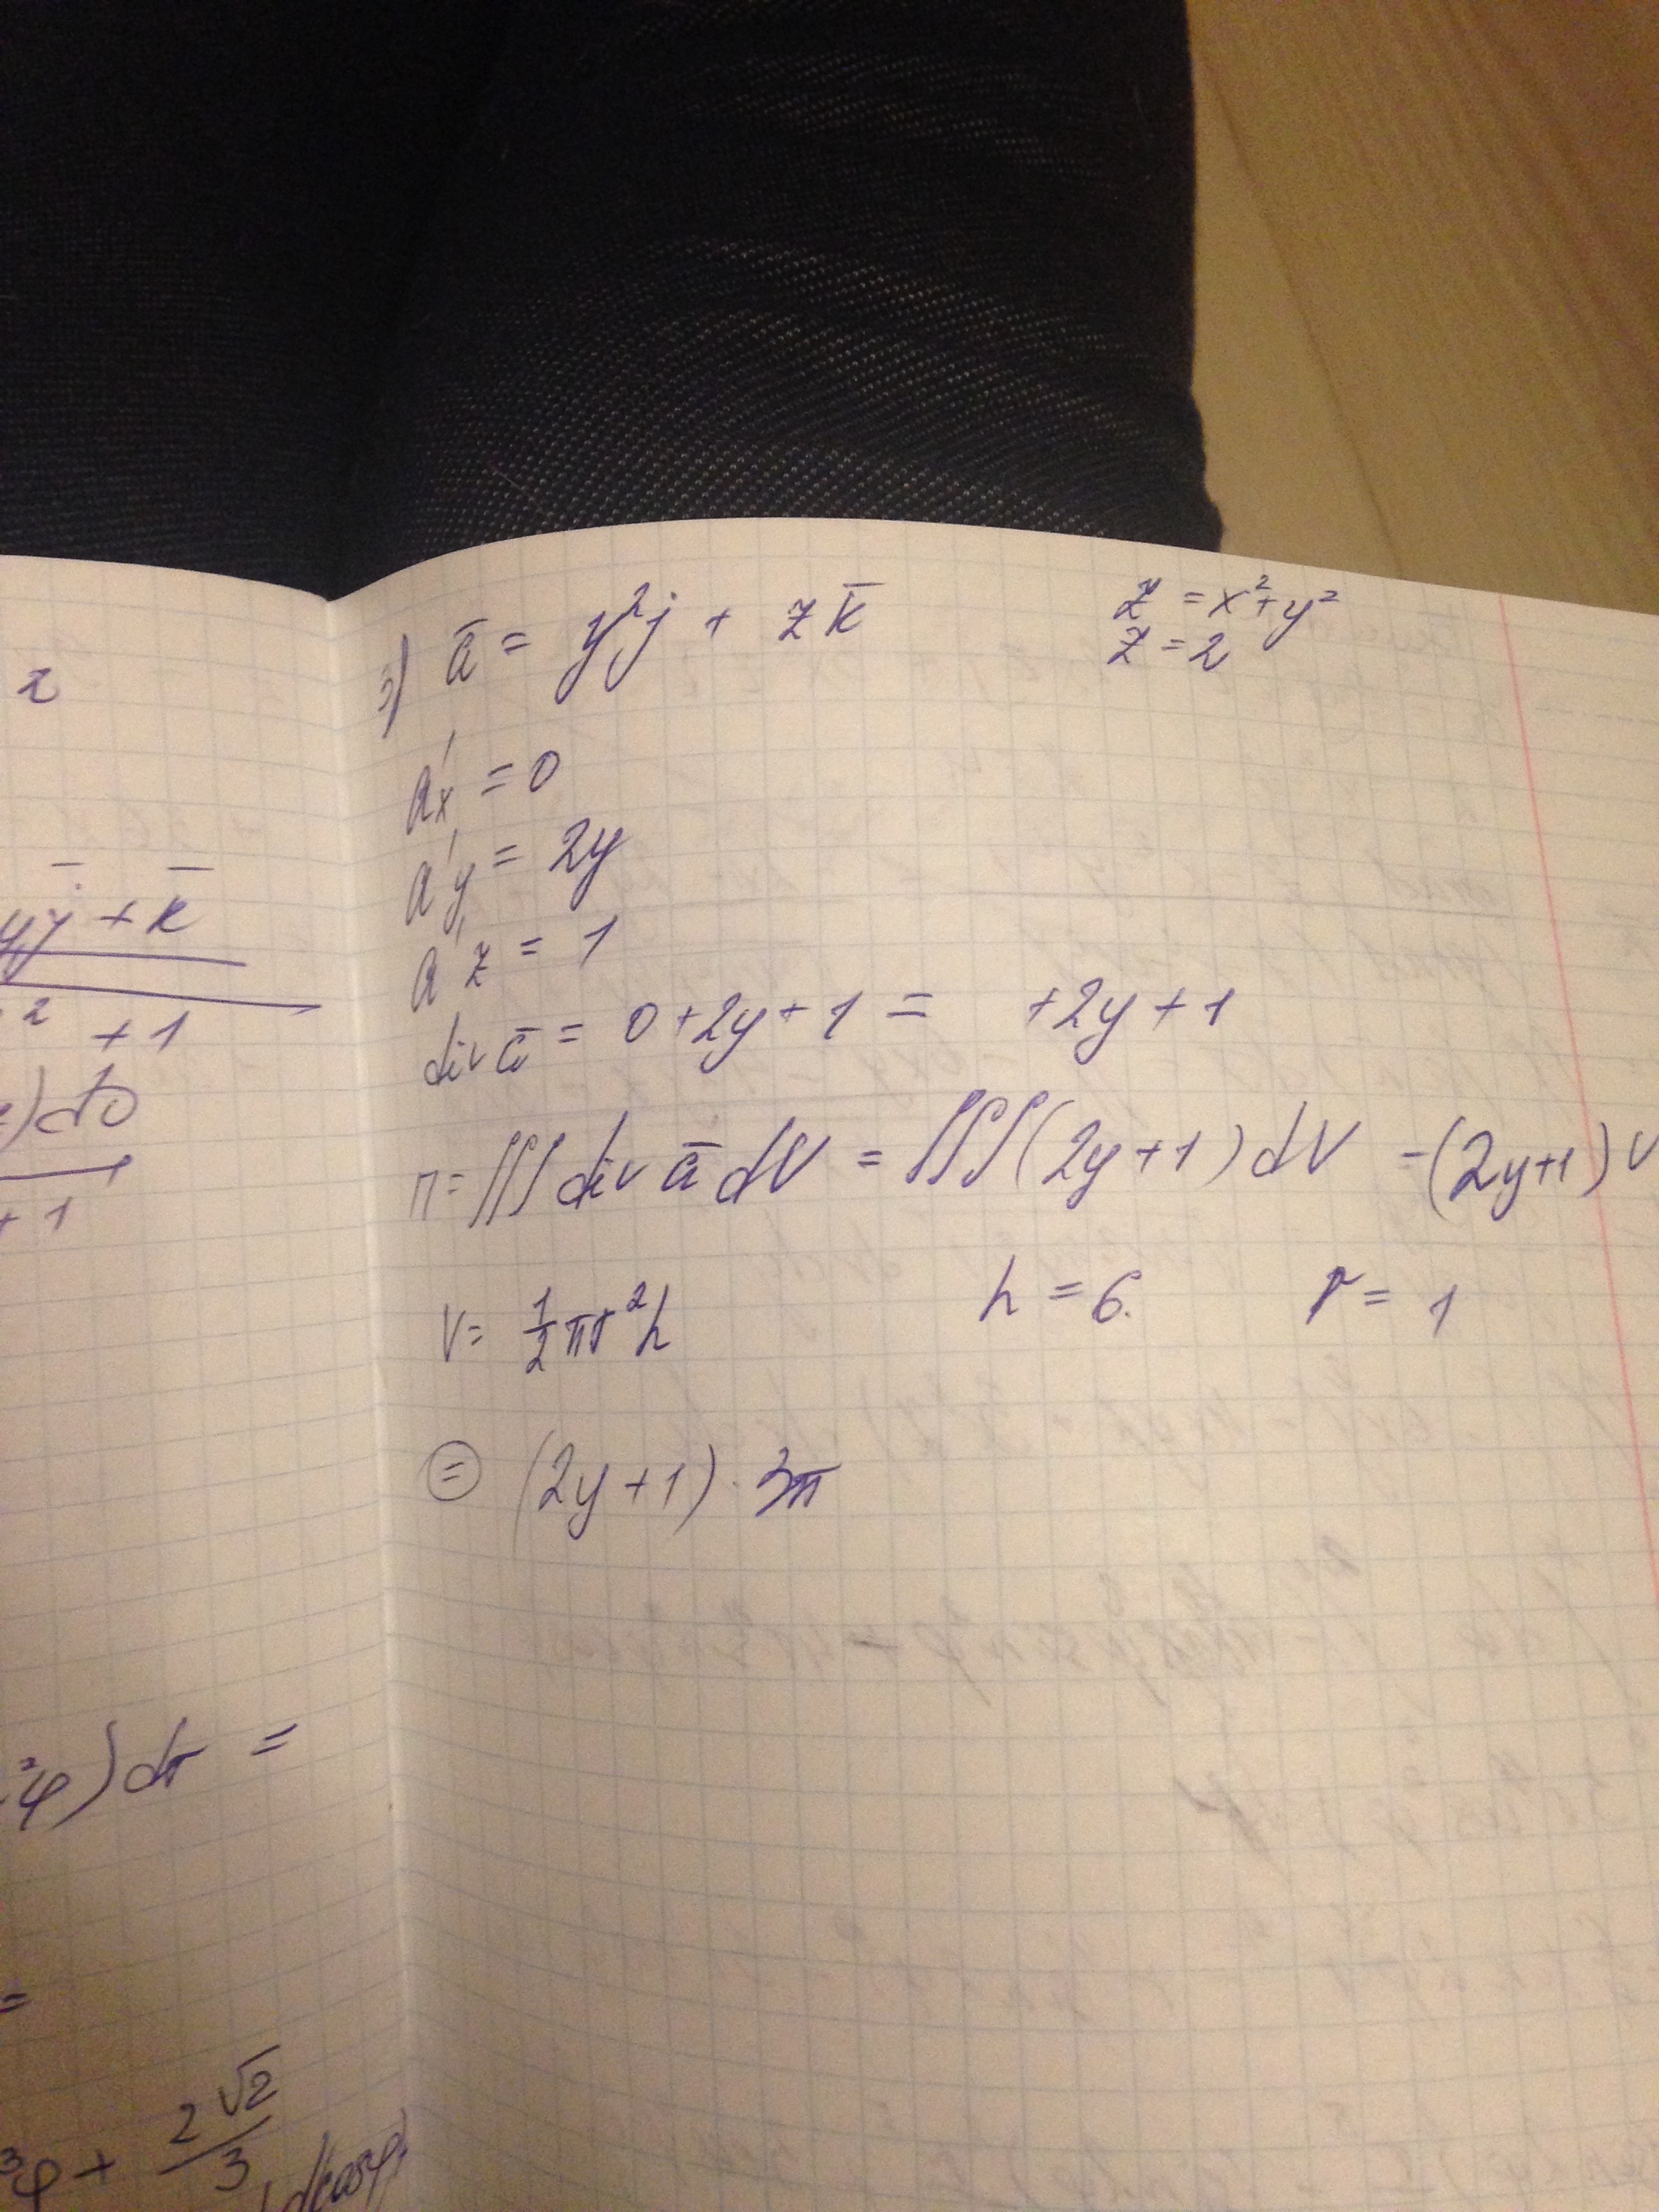 z
yj̄ + k̄
² + 1
) do
+ 1
²φ) dr =
=
³φ + 2√2/3
3) ā = y²j + z k̄
z = x² + y²
z = 2
a'x = 0
a'y = 2y
a'z = 1
div ā = 0 + 2y + 1 = +2y + 1
П = ∭ div ā dV = ∭ (2y + 1) dV - (2y+1) V
V = 1/2 πr²h h = 6. r = 1
⊜ (2y + 1) · 3π